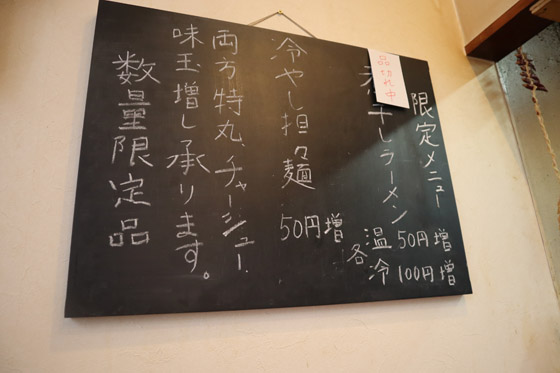 限定メニュー
品切れ中
干しラーメン
各
温 50円増
冷 100円増
冷やし担々麺 50円増
両方特丸、チャーシュー、
味玉増し承ります。
数量限定品